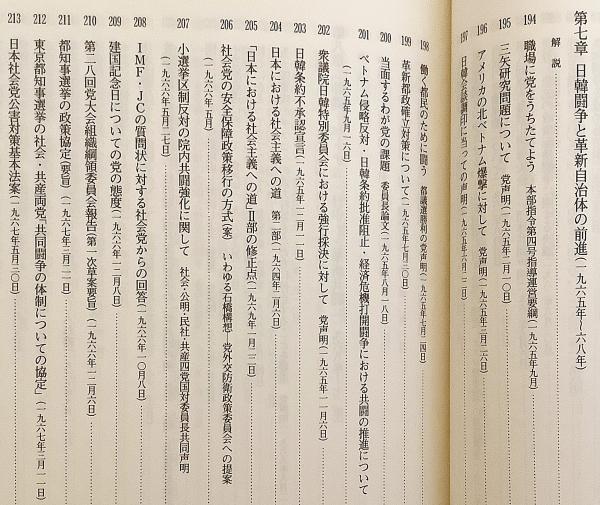 第七章 日韓闘争と革新自治体の前進(一九六五年〜六八年)
解説
194 職場に党をうちたてよう 本部指令第四号指導運営要綱(一九六五年九月)
195 三矢研究問題について 党声明(一九六五年二月一〇日)
196 アメリカの北ベトナム爆撃に対して 党声明(一九六五年三月二六日)
197 日韓会談調印に当っての声明(一九六五年六月二二日)
198 働く都民のために闘う 都議選勝利の党声明(一九六五年七月二四日)
199 革新都政確立対策について(一九六五年七月三〇日)
200 当面するわが党の課題 委員長論文(一九六五年八月一八日)
201 ベトナム侵略反対・日韓条約批准阻止・経済危機打開闘争における共闘の推進について
(一九六五年九月一六日)
202 衆議院日韓特別委員会における強行採決に対して 党声明(一九六五年一一月六日)
203 日韓条約不承認宣言(一九六五年一二月一一日)
204 日本における社会主義への道 第一部(一九六四年一月六日)
205 「日本における社会主義への道」Ⅱ部の修正点(一九六九年一月二二日)
206 社会党の安全保障政策移行の方式(案) いわゆる石橋構想・党外交防衛政策委員会への提案
(一九六六年五月)
207 小選挙区制反対の院内共闘強化に関して 社会・公明・民社・共産四党国対委員長共同声明
(一九六六年五月二七日)
208 IMF・JCの質問状に対する社会党からの回答(一九六六年一〇月八日)
209 建国記念日についての党の態度(一九六六年一二月八日)
210 第二八回党大会組織綱領委員会報告(第一次草案要旨)(一九六六年一二月六日)
211 都知事選挙の政策協定(要旨)(一九六七年三月一一日)
212 東京都知事選挙の社会・共産両党「共同闘争の体制についての協定」(一九六七年三月一一日)
213 日本社会党公害対策基本法案(一九六七年五月二〇日)